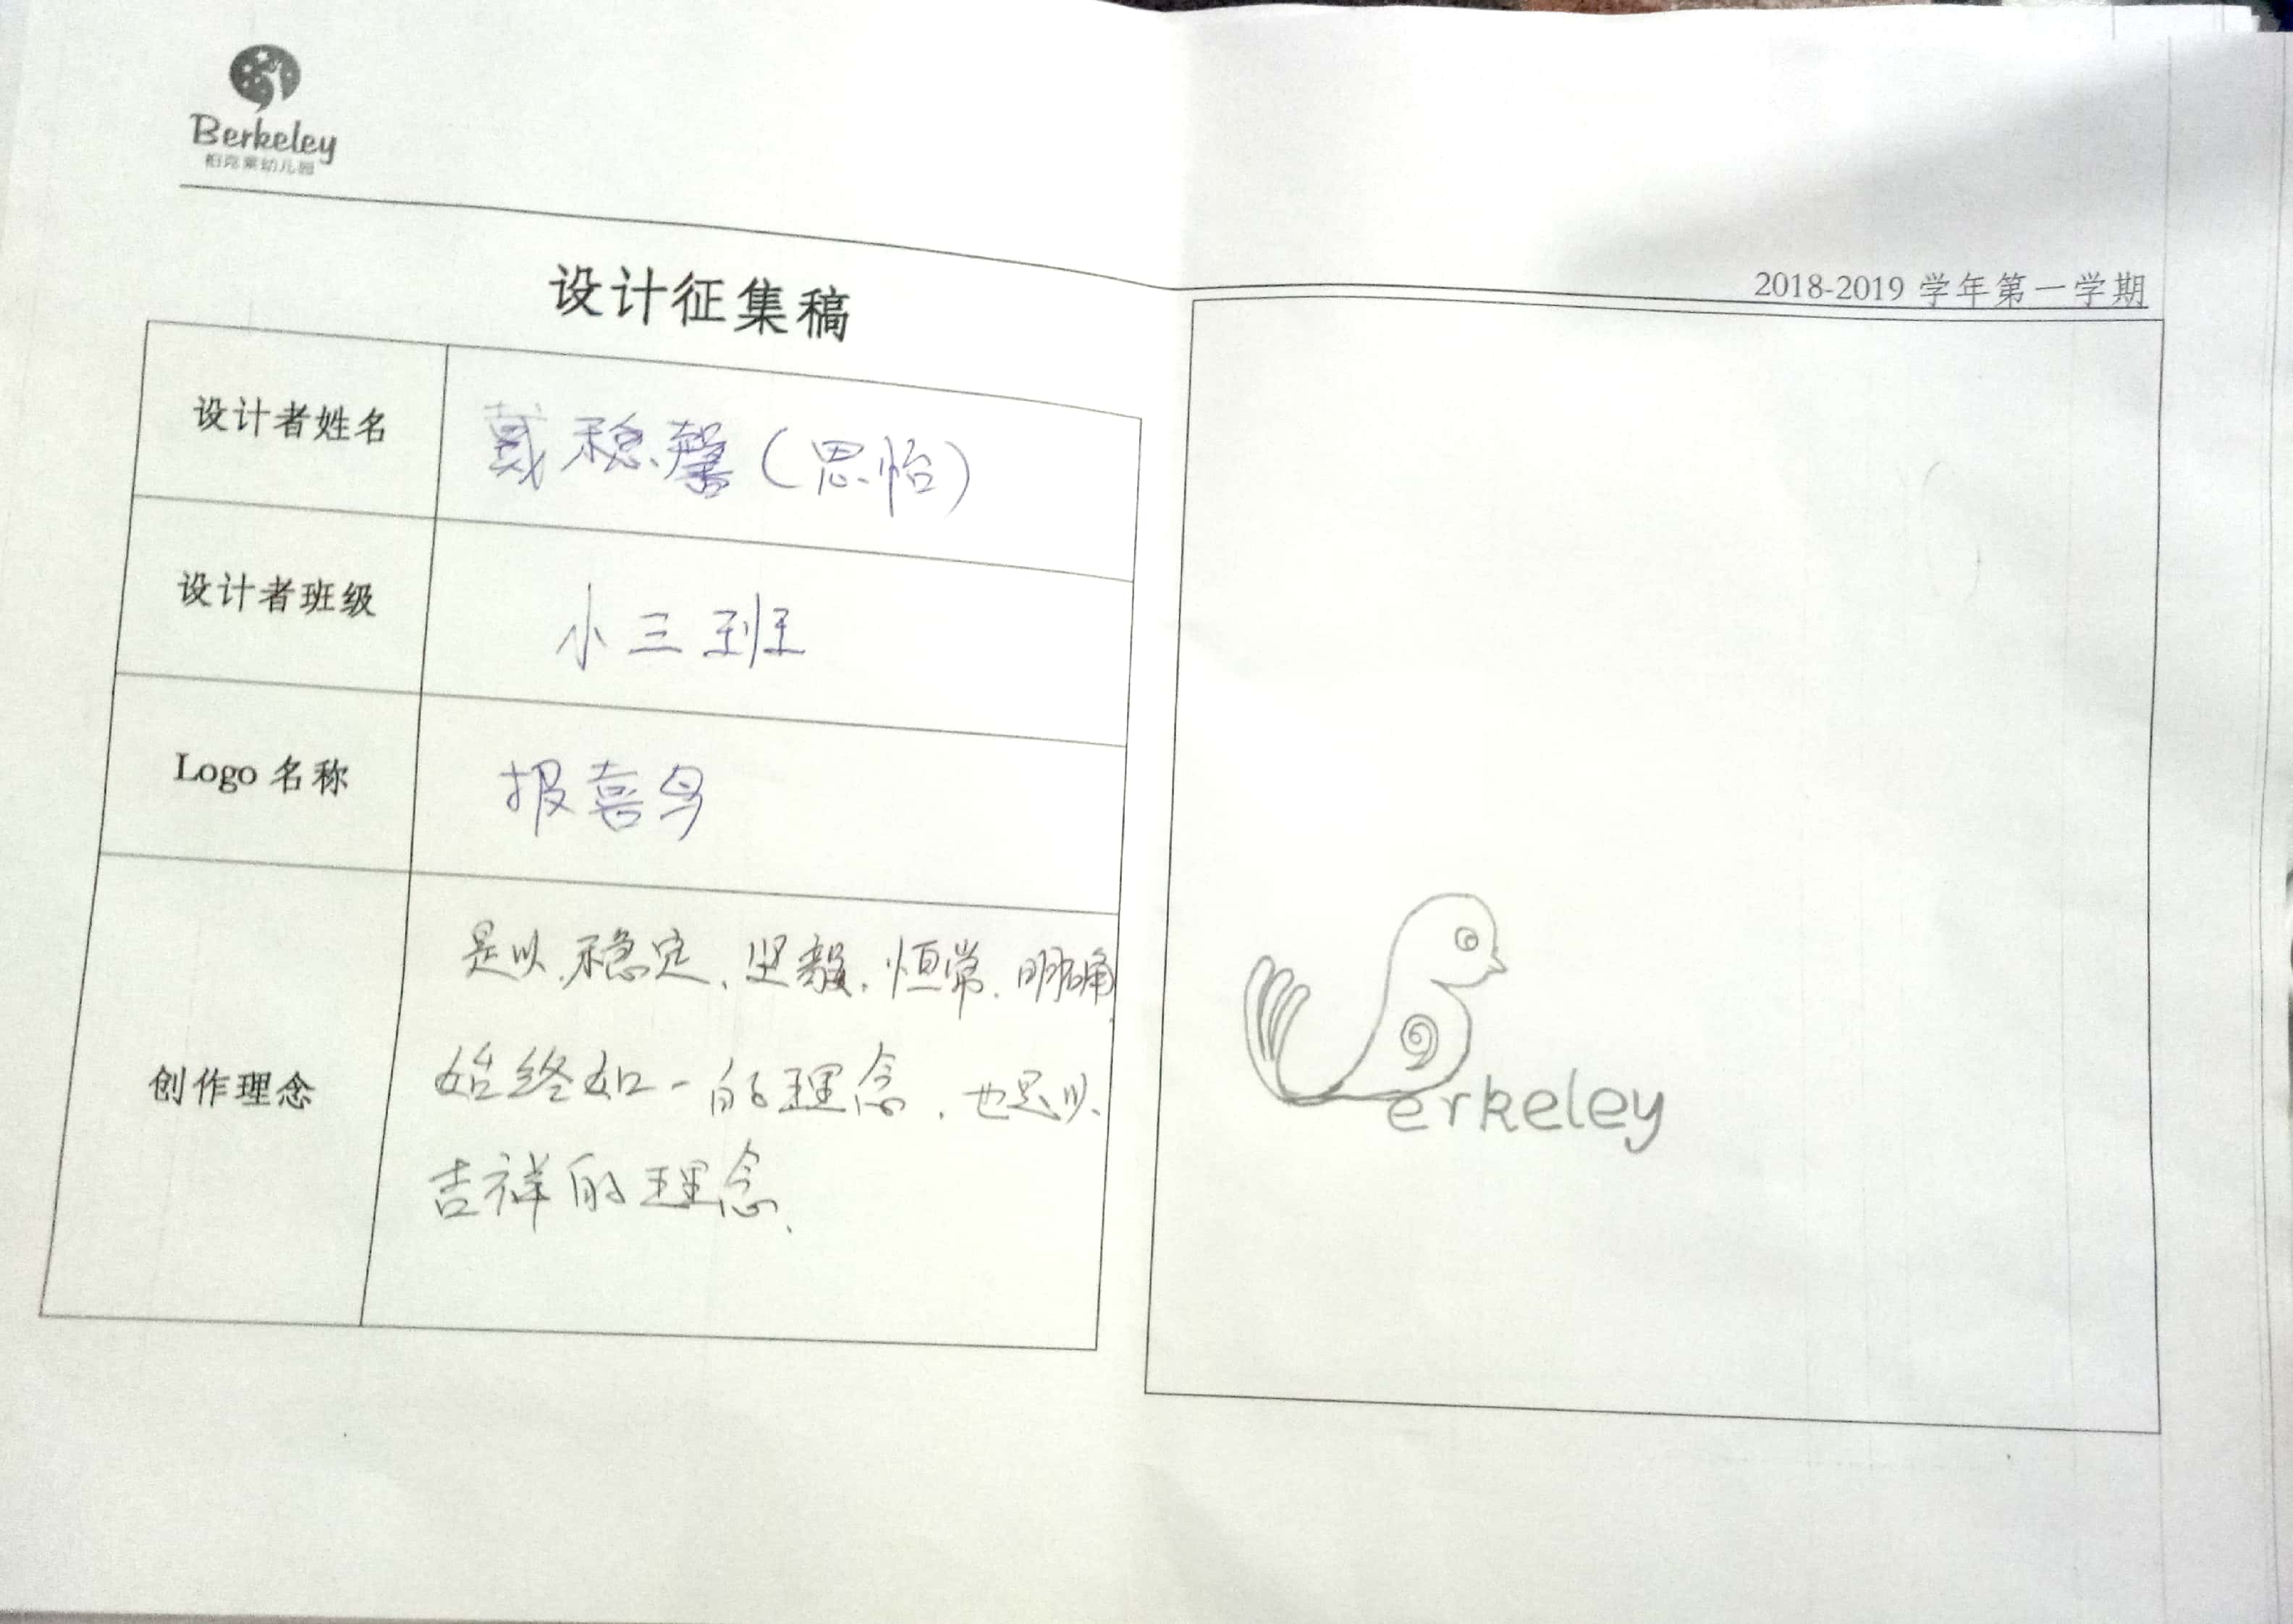 Berkeley
柏克莱幼儿园
设计征集稿
设计者姓名 戴稳馨（思怡）
设计者班级 小三班
Logo 名称 报喜鸟
创作理念
是以、稳定、坚毅、恒常、明确、
始终如一的理念、也是以、
吉祥的理念、
2018-2019 学年第一学期
erkeley